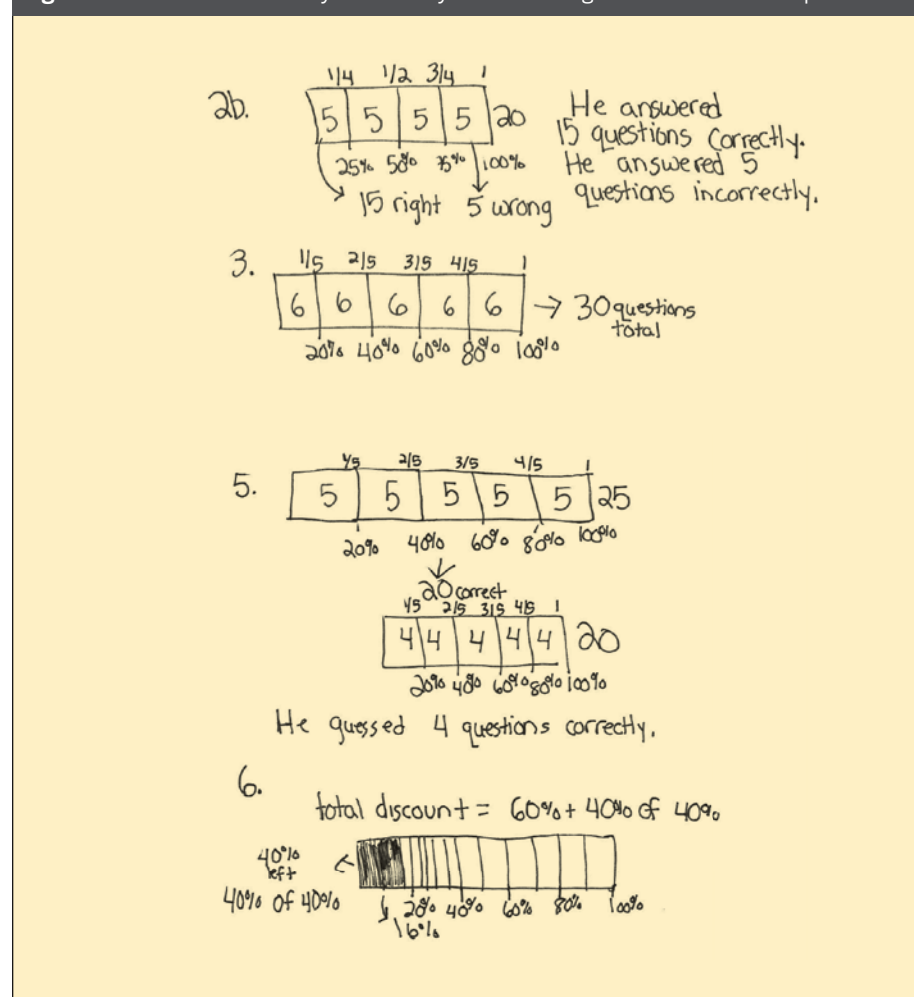 2b.
1/4 1/2 3/4 1
5 5 5 5 20
25% 50% 75% 100%
15 right 5 wrong
He answered
15 questions correctly.
He answered 5
questions incorrectly.
3.
1/5 2/5 3/5 4/5 1
6 6 6 6 6 → 30 questions
total
20% 40% 60% 80% 100%
5.
1/5 2/5 3/5 4/5 1
5 5 5 5 5 25
20% 40% 60% 80% 100%
20 correct
1/5 2/5 3/5 4/5 1
4 4 4 4 4 20
20% 40% 60% 80% 100%
He guessed 4 questions correctly.
6.
total discount = 60% + 40% of 40%
40%
left
40% of 40%
20% 40% 60% 80% 100%
16%